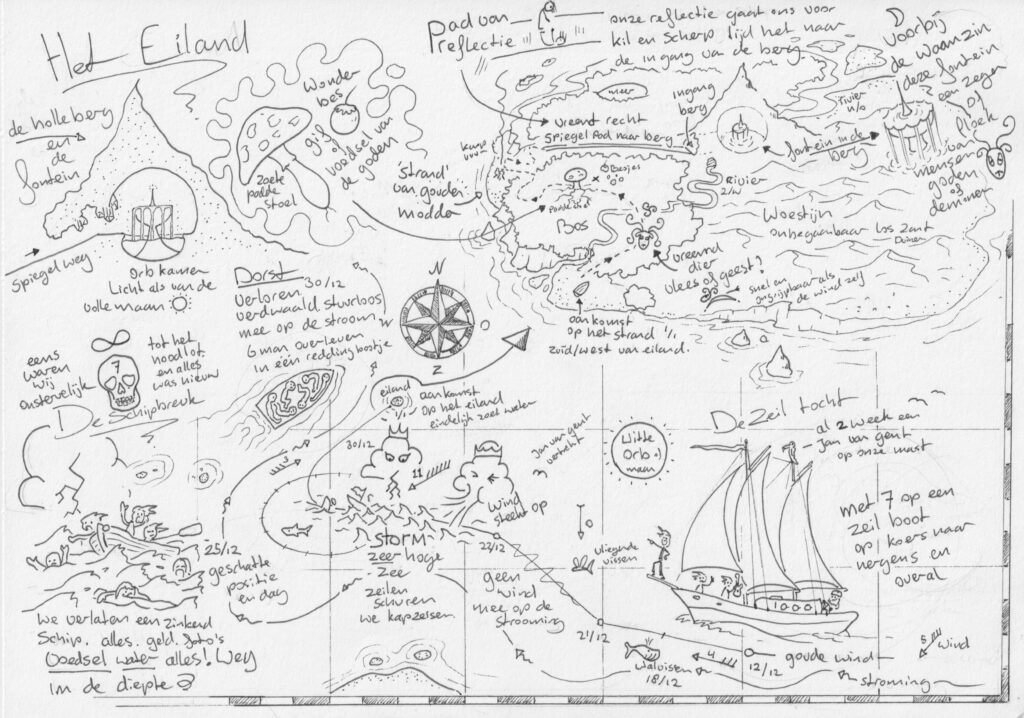 Het Eiland
de holleberg
en
de
fontein
Spiegel weg
Orb kamer
Licht als van de
volle maan
Wonder
bes
gif
of
voedsel van
de goden
Zoete
padde
stoel
Pad van
reflectie
onze reflectie gaat ons voor
kil en scherp lijd het naar
de ingang van de berg
'strand'
van gouden
modder
meer
Ingang
berg
Vreemd recht
Spiegel Pad naar berg
Kamp
Besjes
Bos
Rivier
Z/W
rivier
N/O
fontein in de
berg
Voorbij
de waanzin
deze fontein
een zegen
of
Vloek
van
mensen
goden
of
demonen
Woestijn
onbegaanbaar los zant
Duinen
Vreemd
dier
vlees of geest?
snel en
ongrijpbaar als
de wind zelf
aankomst
op het strand 1/1
Zuid/west van eiland.
Dorst
Verloren 30/12
verdwaald stuurloos
mee op de stroom
6 man overleven
in één reddingbootje
N
W
O
Z
eens
waren
wij
onstervelijk
7
tot het
noodlot
en alles
was nieuw
De Schipbreuk
eiland
1/1
aankomst
op het eiland
eindelijk zoet water
30/12
11
Jan van gent
vertrekt
Wind
steekt op
25/12
geschatte
positie
en dag
STORM
zeer hoge
Zee
zeilen
schuren
we kapzeisen
23/12
geen
wind
mee op de
strooming
Vliegende
vissen
O
21/12
Walvissen
18/12
4
12/12
goude wind
5
wind
strooming
Witte
Orb
maan
De Zeil tocht
al 2 week een
Jan van gent
op onze mast
met 7 op een
zeil boot
op, koers naar
nergens en
overal
We verlaten een zinkend
Schip. alles. geld. foto's
Voedsel water alles! Weg
in de diepte